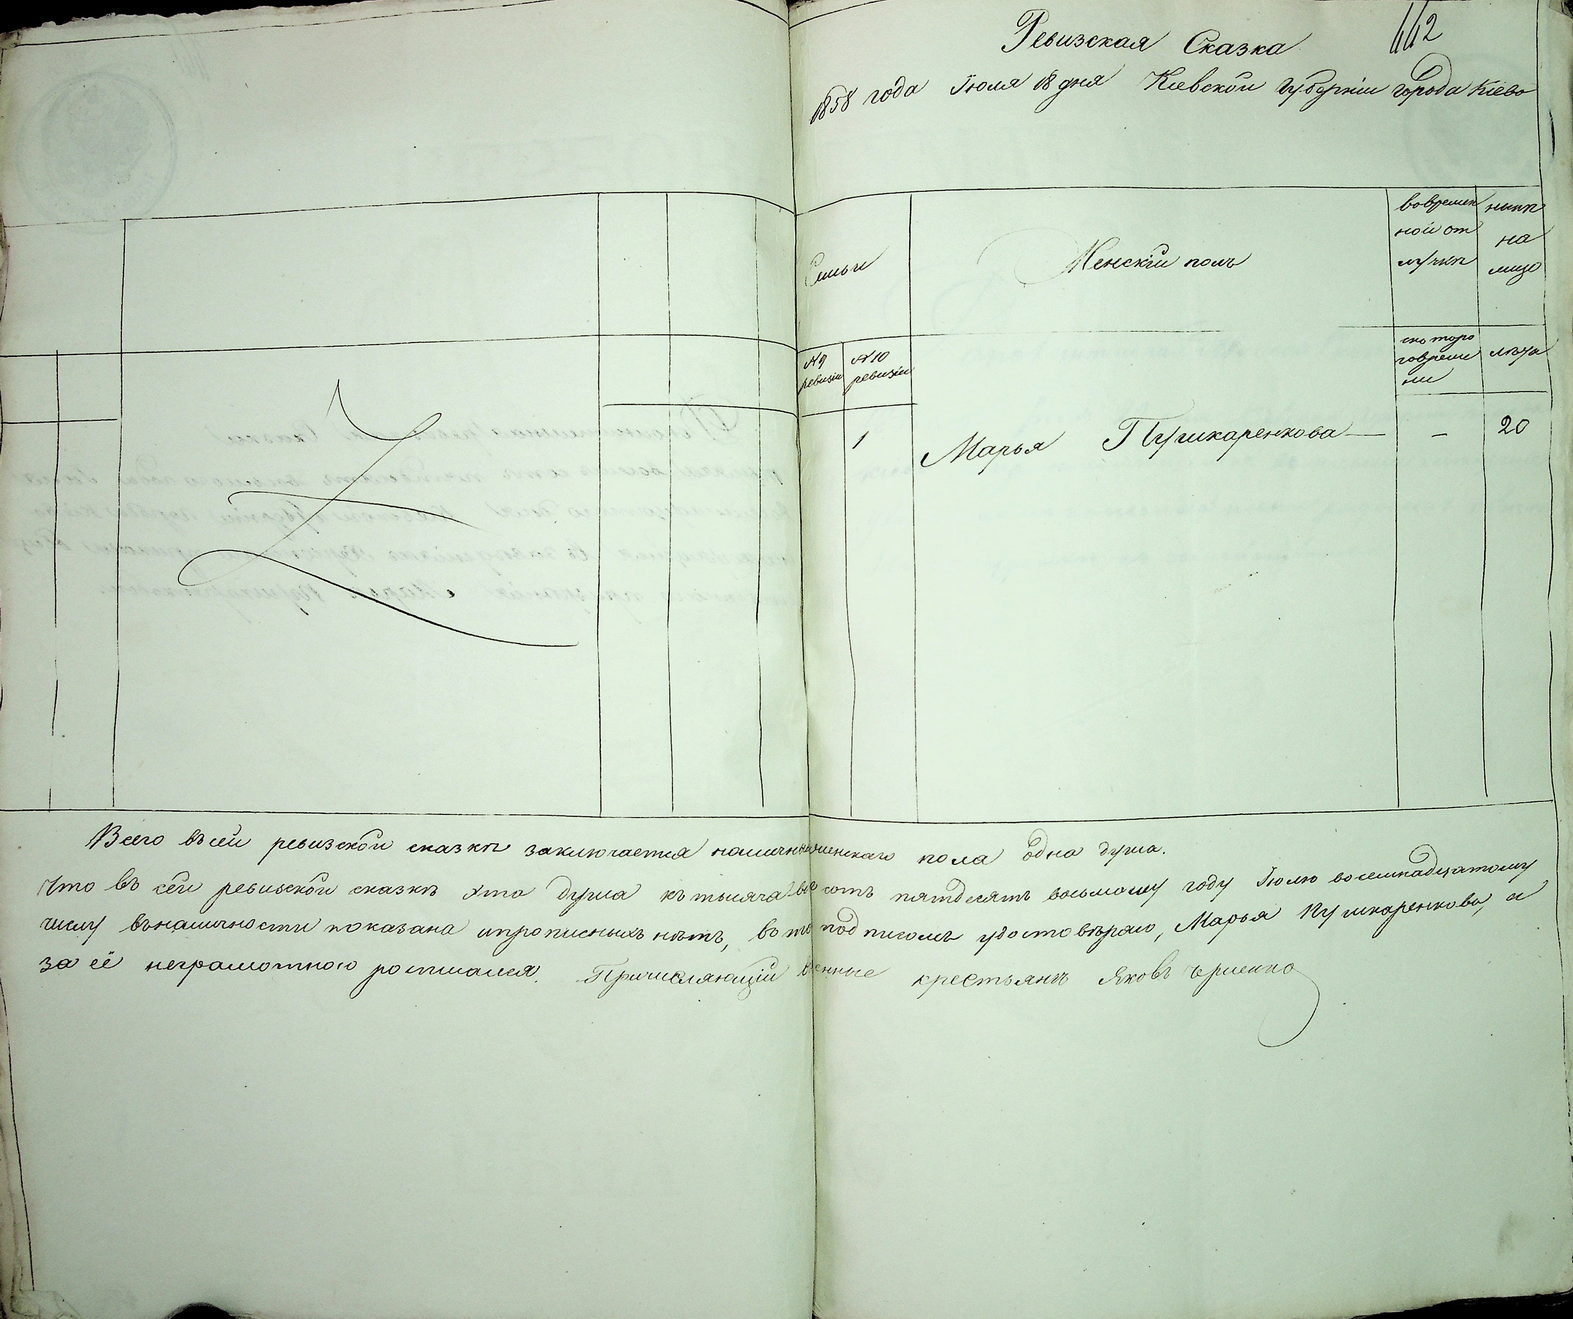 Ревизская Сказка
442
1858 года Июля 18 дня Киевской Губерніи города Кіево
Семьи
Женскій полъ
вовремен
ной от
лучки
нынѣ
на
лицо
№ 9 ревизіи
№ 10 ревизіи
скоторо
говреме
ни
лѣта
1 Марья Пушкаренкова — — 20
Всего въсей ревизской сказкѣ заключается наличн женскаго пола одна душа.
Что въ сей ревизской сказкѣ эта душа къ тысяча во сотъ пятдесятъ восьмому году Іюлю восемнадцатому
числу вналичности показана ипрописныхъ нѣтъ, въ то подписомъ удостовѣряю, Марья Пушкаренкова, а
за её неграмотною росписался. Причисляющій енные крестьянъ Яковъ